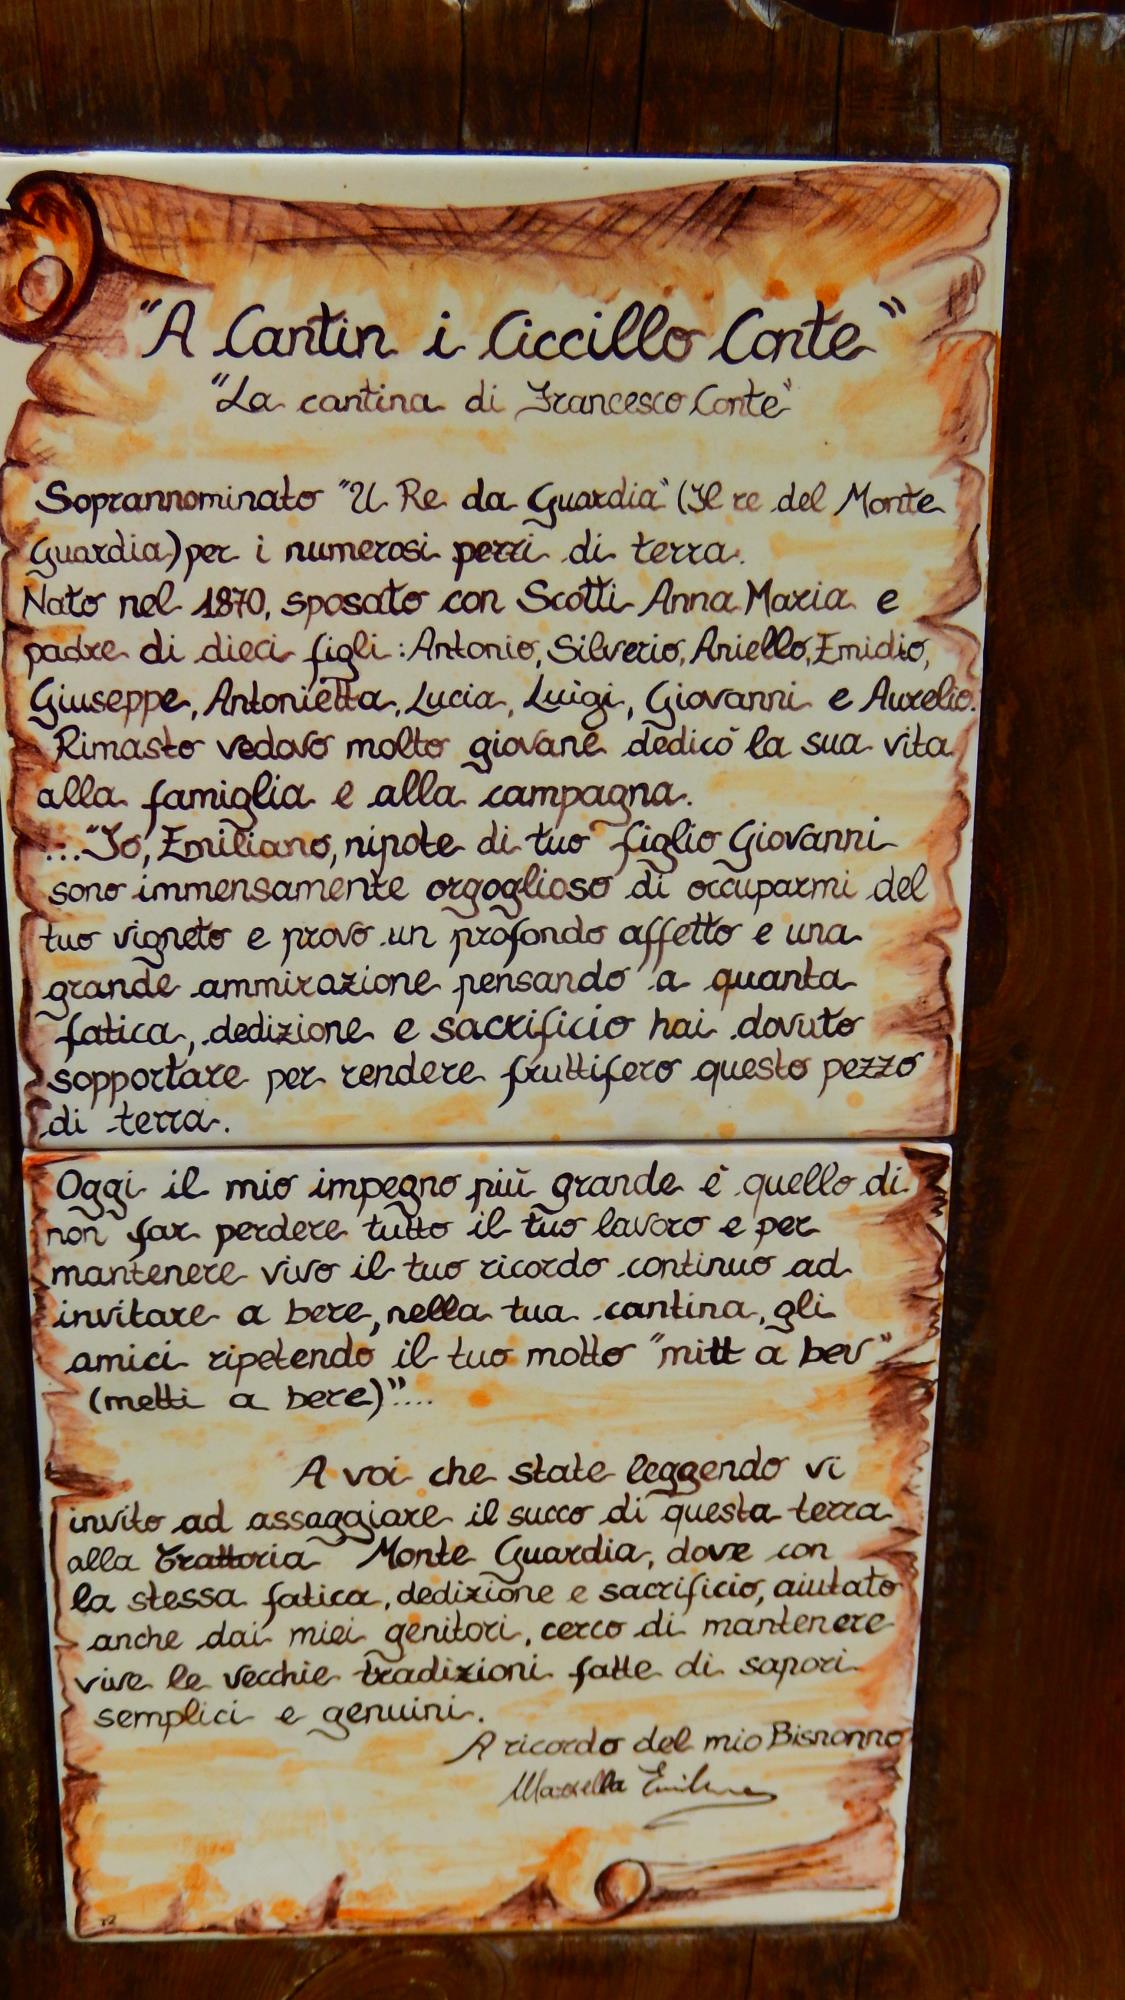 "A Cantin i Ciccillo Conte"
"La cantina di Francesco Conte"
Soprannominato "U Re da Guardia" (Il re del Monte
Guardia) per i numerosi pezzi di terra.
Nato nel 1870, sposato con Scotti Anna Maria e
padre di dieci figli: Antonio, Silverio, Aniello, Emidio,
Giuseppe, Antonietta, Lucia, Luigi, Giovanni e Aurelio.
Rimasto vedovo molto giovane dedicò la sua vita
alla famiglia e alla campagna.
..."Io, Emiliano, nipote di tuo figlio Giovanni
sono immensamente orgoglioso di occuparmi del
tuo vigneto e provo un profondo affetto e una
grande ammirazione pensando a quanta
fatica, dedizione e sacrificio hai dovuto
sopportare per rendere fruttifero questo pezzo
di terra.
Oggi il mio impegno più grande è quello di
non far perdere tutto il tuo lavoro e per
mantenere vivo il tuo ricordo continuo ad
invitare a bere, nella tua cantina, gli
amici ripetendo il tuo motto "mitt a bev"
(metti a bere)"....
A voi che state leggendo vi
invito ad assaggiare il succo di questa terra
alla Trattoria Monte Guardia, dove con
la stessa fatica, dedizione e sacrificio, aiutato
anche dai miei genitori, cerco di mantenere
vive le vecchie tradizioni fatte di sapori
semplici e genuini.
A ricordo del mio Bisnonno